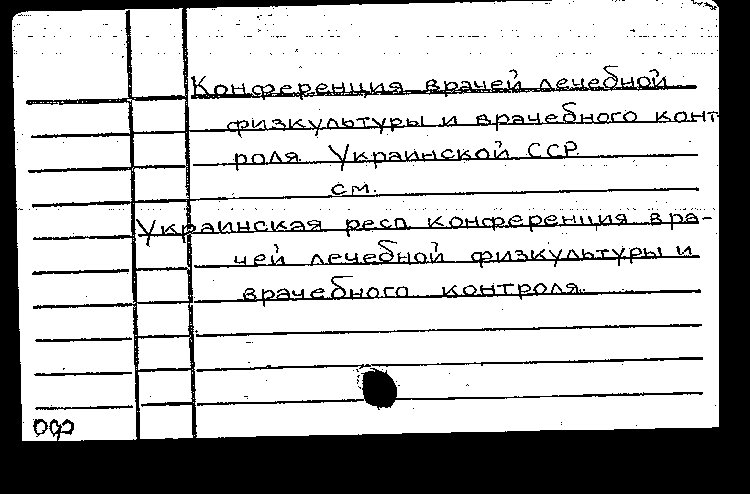 Конференция врачей лечебной
физкультуры и врачебного конт
роля Украинской ССР.
см.
Украинская респ. конференция вра-
чей лечебной физкультуры и
врачебного контроля.